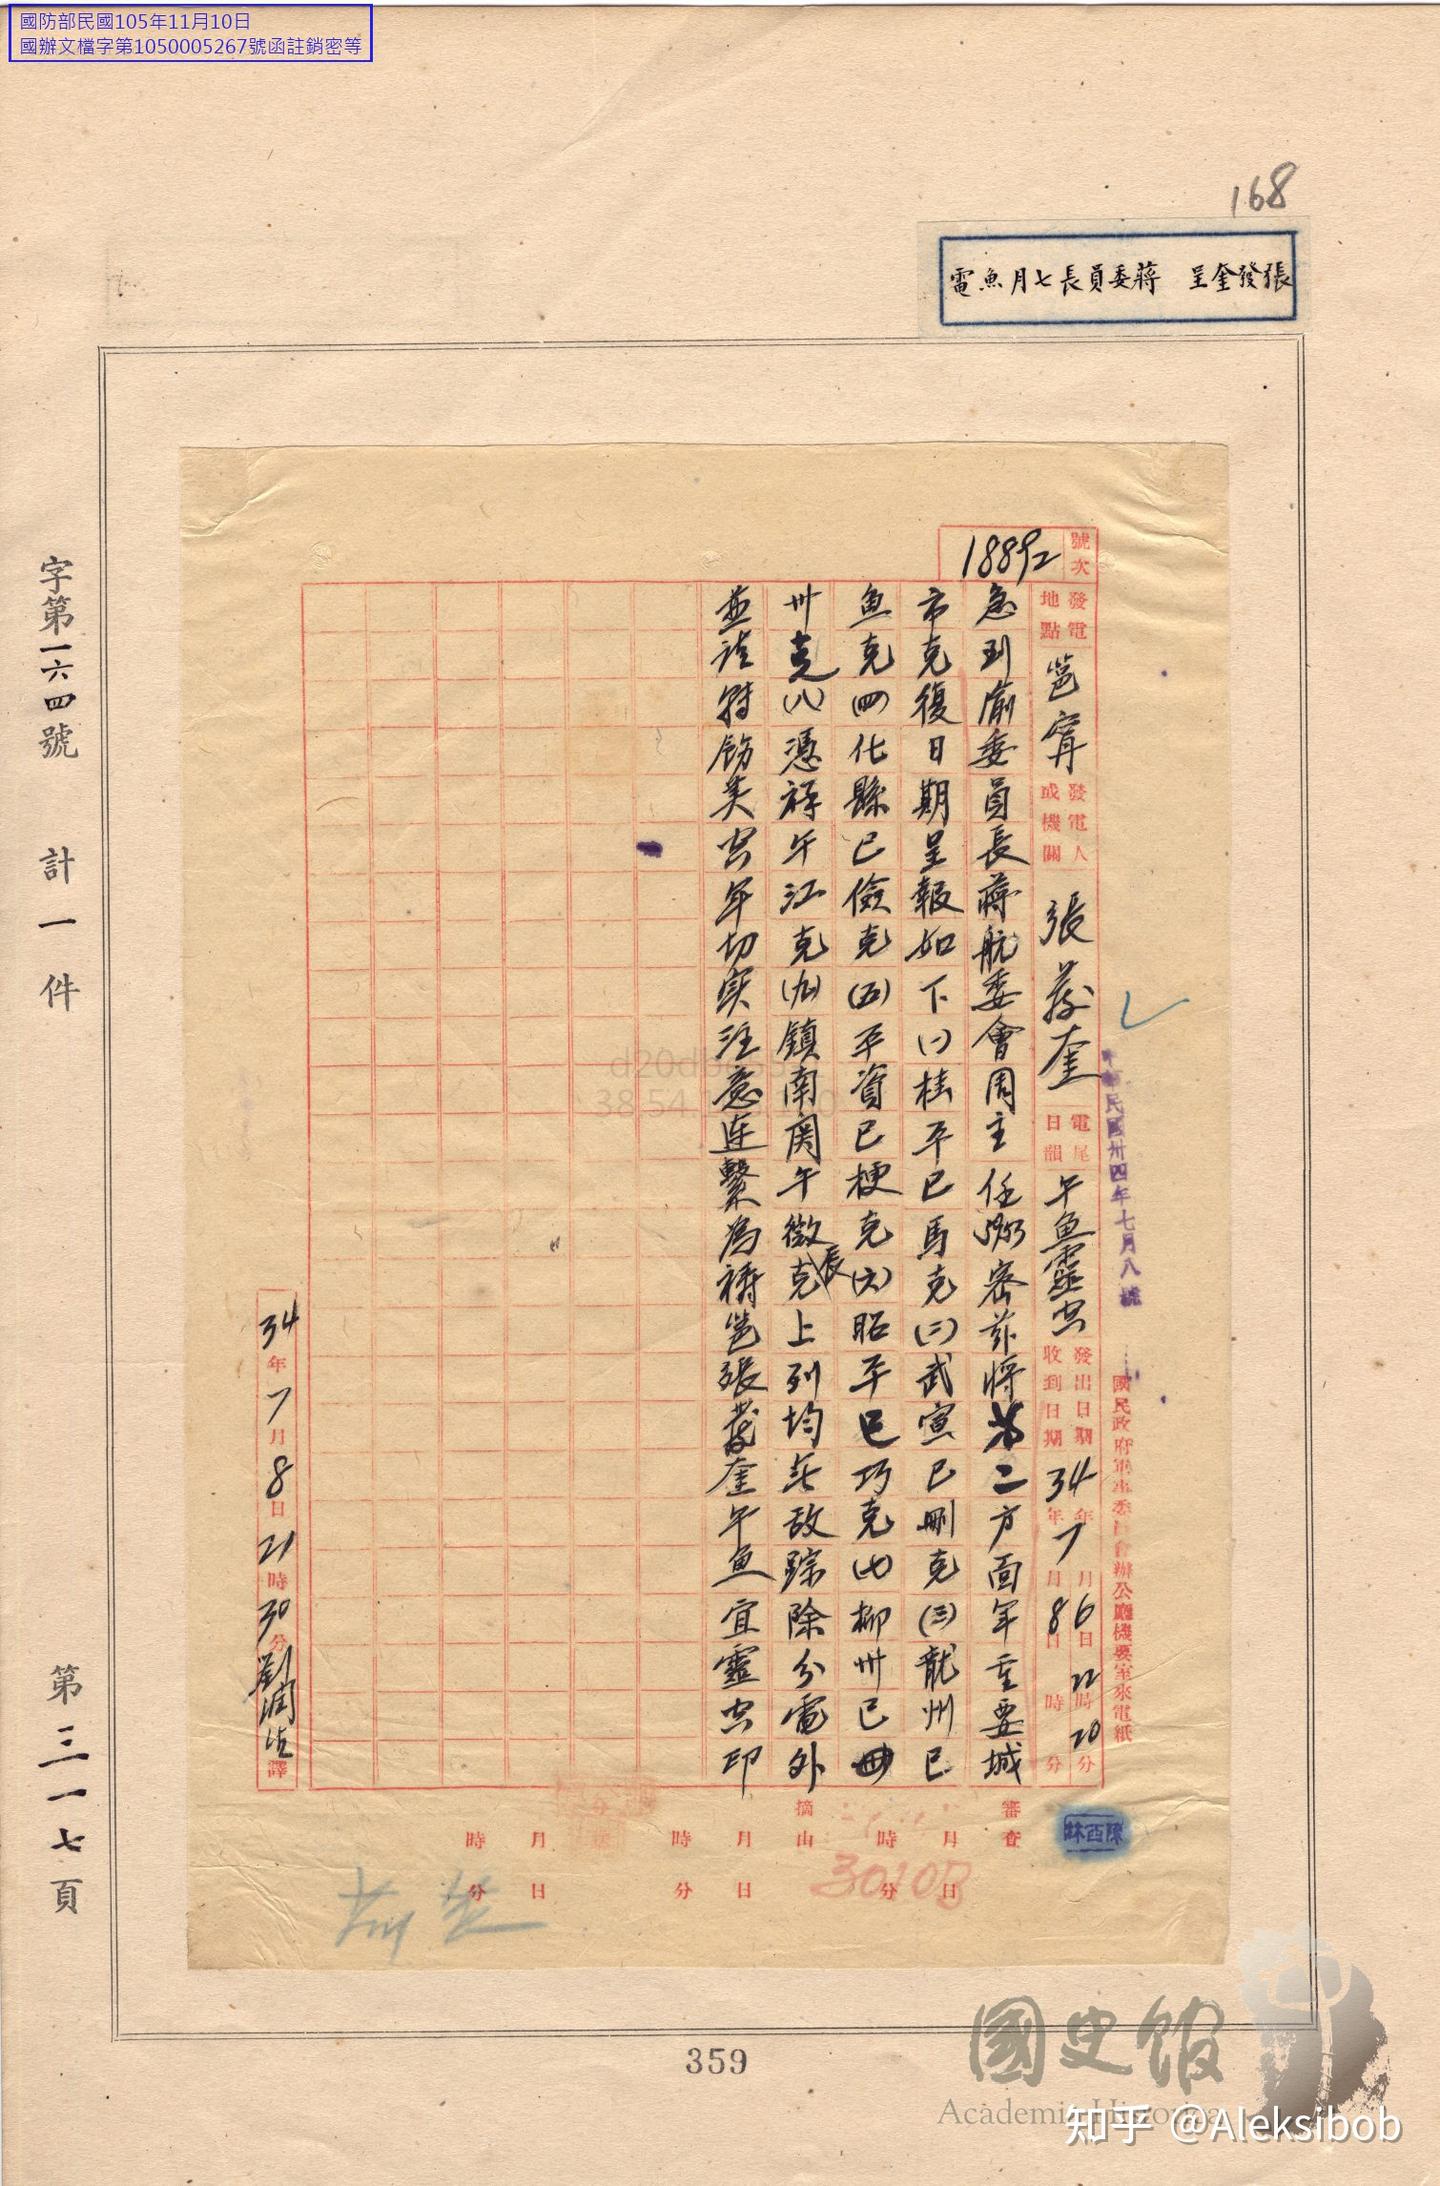 國防部民國105年11月10日
國辦文檔字第1050005267號函註銷密等
168
張發奎呈 蔣委員長七月魚電
號次 18892
發電地點 邕寗
發電人或機關 張發奎
電尾日韻 午魚靈忠
發出日期 34年7月6日22時20分
收到日期 34年7月8日 時 分
中華民國卅四年七月八號
國民政府軍事委員會辦公廳機要室來電紙
急到渝委員長蔣航委會周主任5953密茲將第二方面軍重要城
市克復日期呈報如下(一)桂平巳馬克(二)武宣巳刪克(三)龍州巳
魚克(四)化縣巳儉克(五)平資巳梗克(六)昭平巳巧克(七)柳州巳
卅克(八)憑祥午江克(九)鎮南関午微克長上列均無敵踪除分電外
並請轉飭美空軍切实注意連繫為禱邕張發奎午魚宜靈忠印
34年7月8日21時30分 譯
審查 月 日 時 分
摘由 月 日 時 分
月 日 時 分
30108
陳西林
字第一六四號 計一件 第三一七頁
359
國史館
Academia Historica
知乎 @Aleksibob